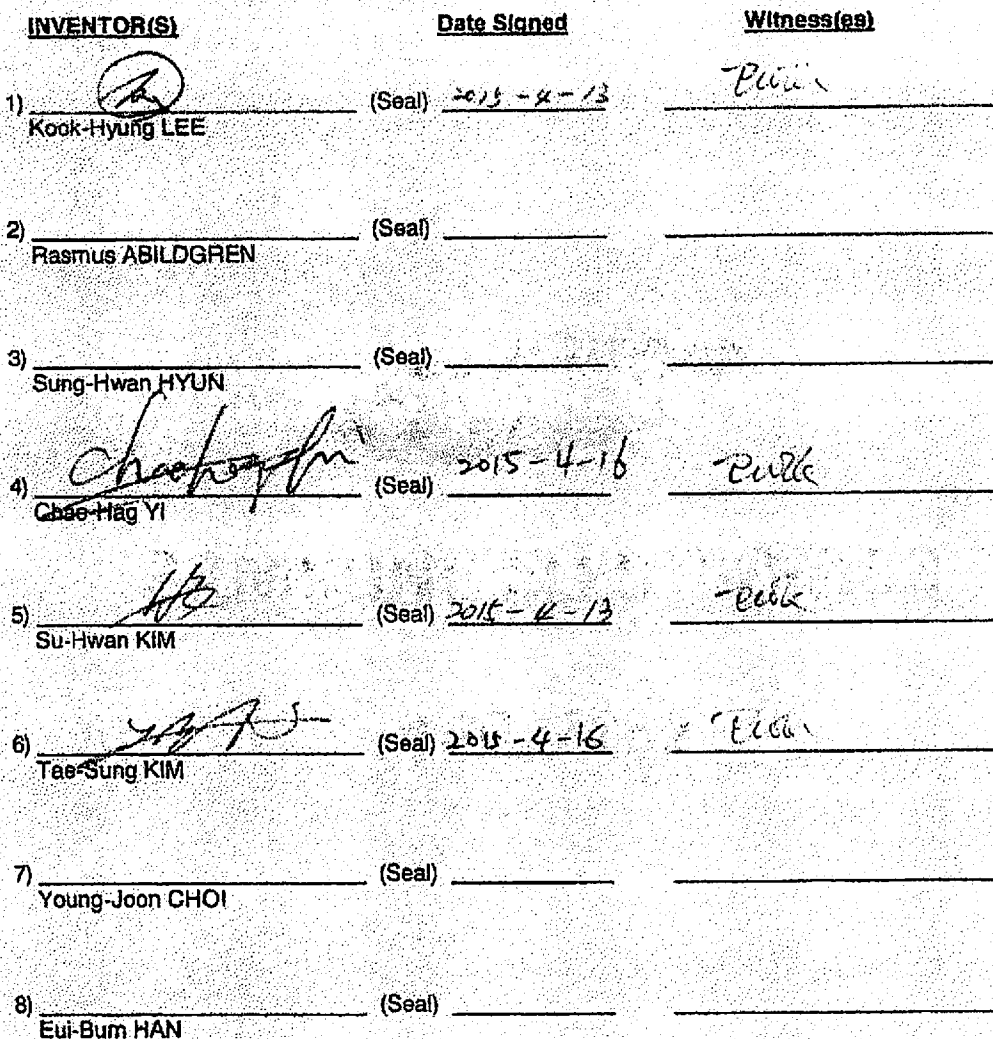 INVENTOR(S) Date Signed Witness(es)
1) (Seal) 2015-4-13
Kook-Hyung LEE
2) (Seal)
Rasmus ABILDGREN
3) (Seal)
Sung-Hwan HYUN
4) (Seal) 2015-4-16
Chae-Hag YI
5) (Seal) 2015-4-13
Su-Hwan KIM
6) (Seal) 2015-4-16
Tae-Sung KIM
7) (Seal)
Young-Joon CHOI
8) (Seal)
Eui-Bum HAN